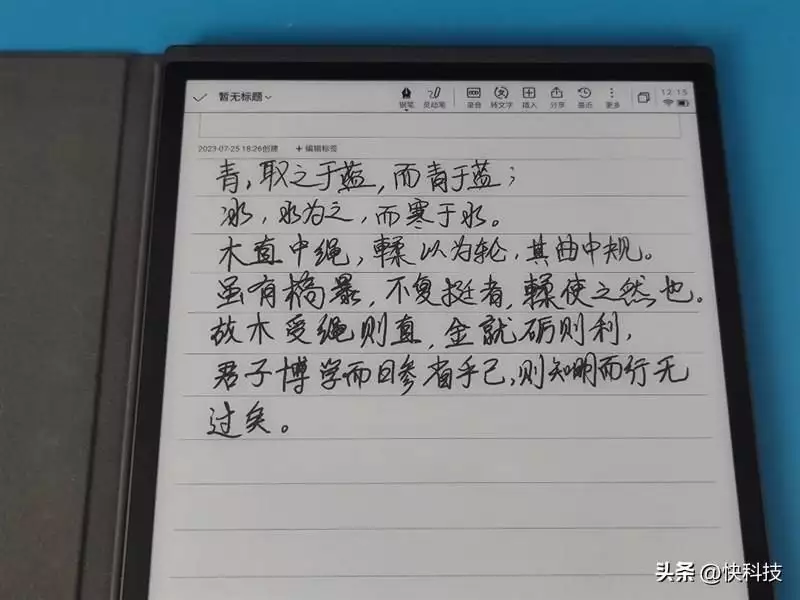 暂无标题
钢笔 灵动笔 录音 转文字 插入 分享 最近 更多
12:15
2023-07-25 18:26创建 + 编辑标签
青,取之于蓝,而青于蓝;
冰,水为之,而寒于水。
木直中绳,輮以为轮,其曲中规。
虽有槁暴,不复挺者,輮使之然也。
故木受绳则直,金就砺则利,
君子博学而日参省乎己,则知明而行无
过矣。
头条 @快科技